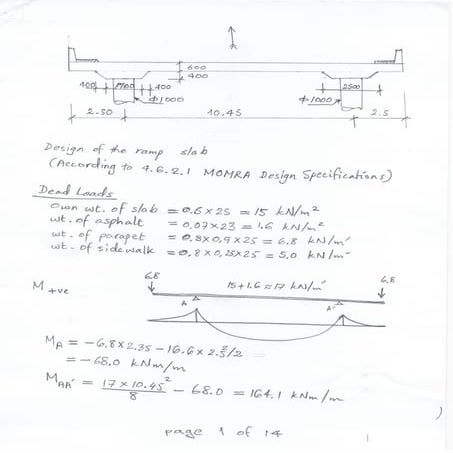 600
400
400 1700 400
Φ1000
Φ1000
2500
2.50 10.45 2.5
Design of the ramp slab
(According to 4.6.2.1 MOMRA Design Specifications)
Dead Loads
Own wt. of slab = 0.6 x 25 = 15 kN/m²
wt. of asphalt = 0.07 x 23 = 1.6 kN/m²
wt. of parapet = 0.3 x 0.9 x 25 = 6.8 kN/m'
wt. of sidewalk = 0.8 x 0.25 x 25 = 5.0 kN/m'
M +ve
6.8 15+1.6 ≈ 17 kN/m' 6.8
A A'
MA = -6.8 x 2.35 - 16.6 x 2.5²/2
= -68.0 kNm/m
MAA' = 17 x 10.45²/8 - 68.0 = 164.1 kNm/m
page 1 of 14